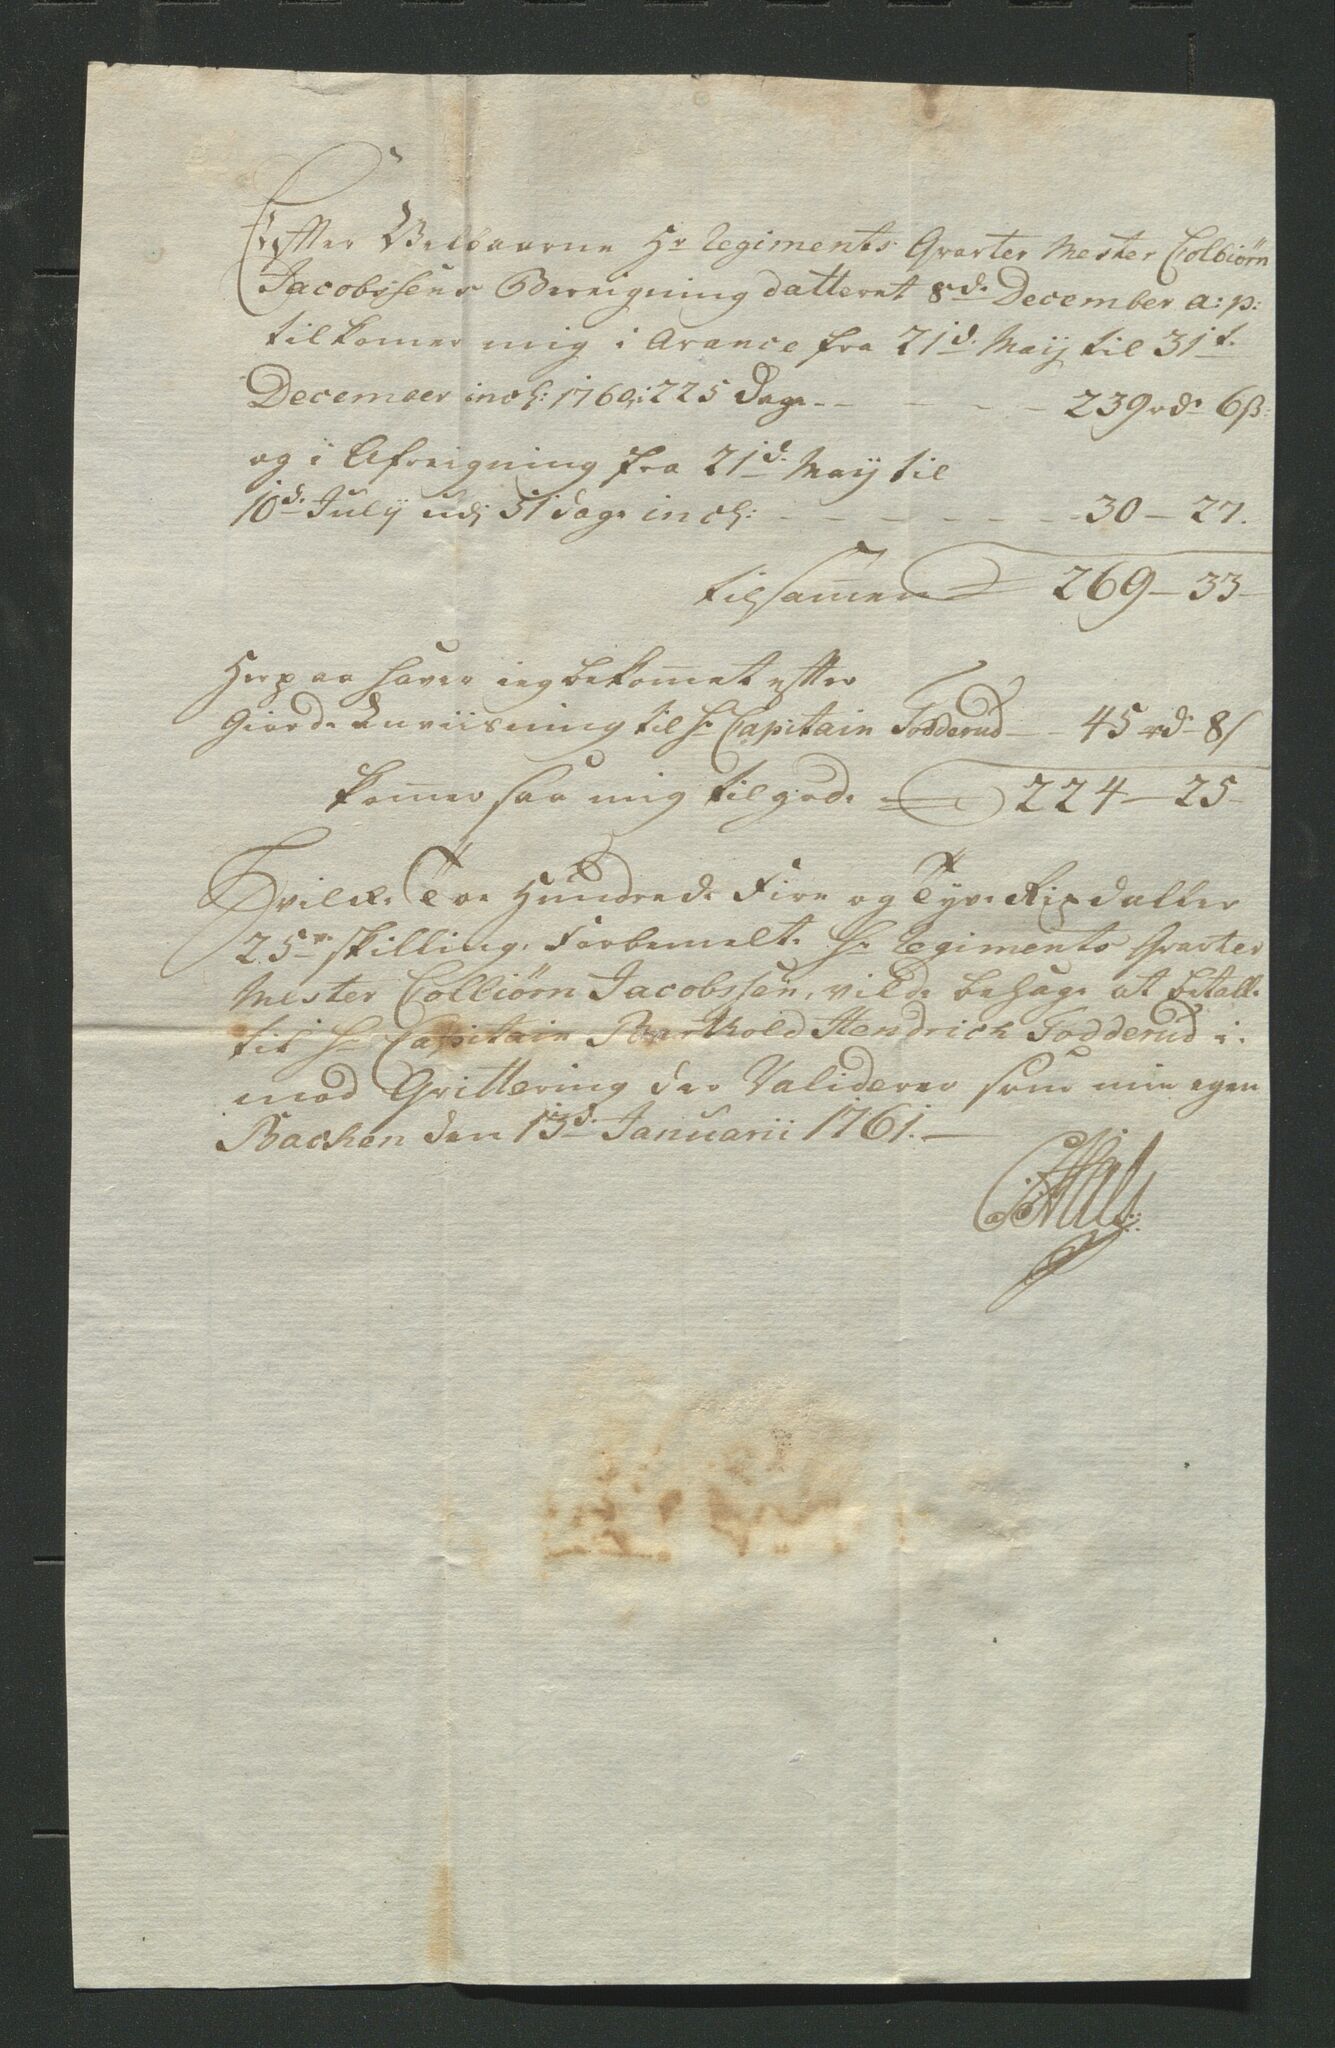 Efter Velbaarne Hr Regiments Qvarter Mester Colbiørn
Jacobssens Bereigning datteret 8de December a: p:
tilkomer mig i Avance fra 21de Maij til 31t.
December incl: 1760, 225 dage - - - - 239 rd. 6 ß:
og i Afreigning fra 21de Maij til
10de Julij udj 51 dage incl: - - - - - - 30 - 27.
tilsamen 269 - 33 -
Herpaa haver ieg bekomet efter
Giorde Anviisning til Hr Capitain Todderud - 45 rd. 8 ß
komer saa mig tilgode 224 - 25 -
Hvilke Toe Hundrede Fire og Tyve Rixdaller
25 skilling, Forbemelte Hr Regiments Qvarter
Mester Colbiørn Jacobssen, vilde behage at betalle
til Hr Capitain Barthold Hendrich Todderud i-
mod Qvittering der Validerer som min egen
Bachen den 13de Januarii 1761. -